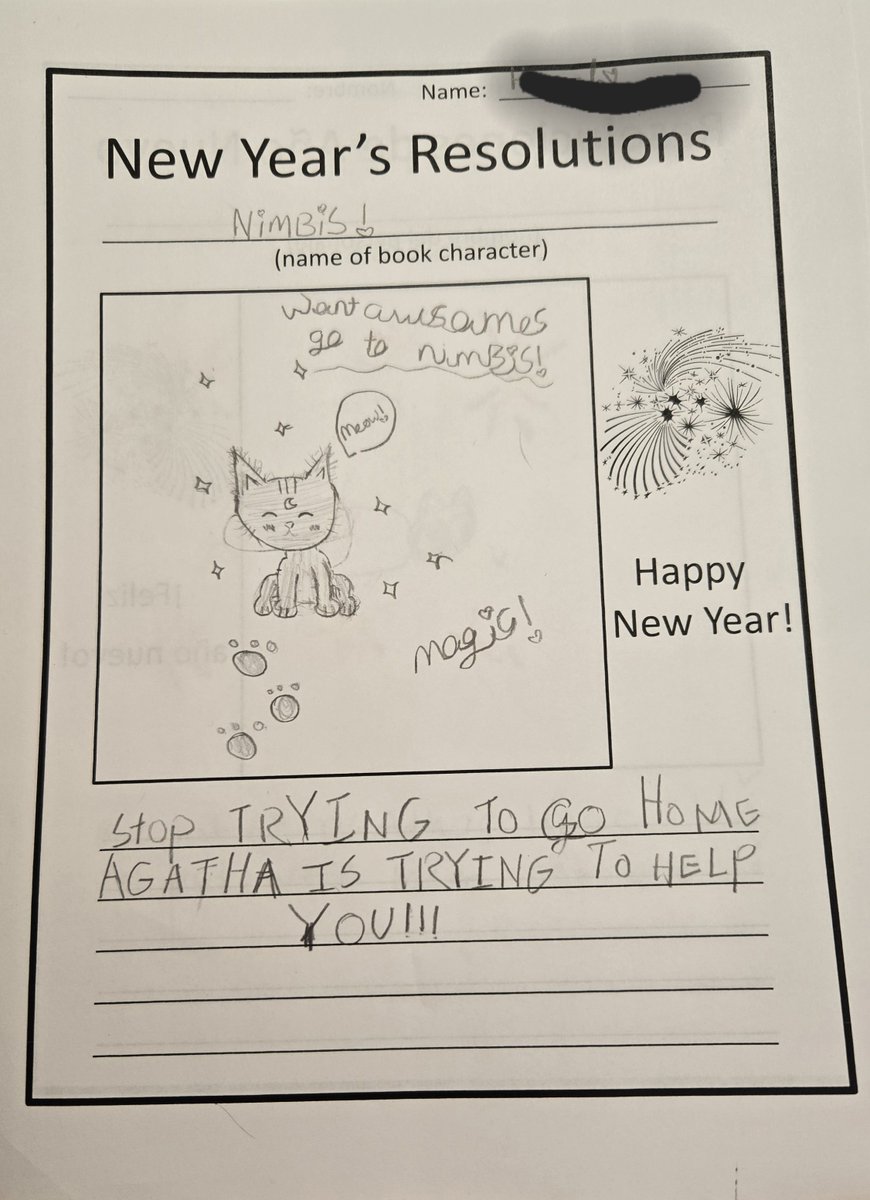 Name:
New Year's Resolutions
NiMBiS!
(name of book character)
Want awsomes
go to nimBis!
meow!!
magic!
Happy
New Year!
Stop TRYING TO GO HOME
AGATHA IS TRYING TO HELP
YOU!!!